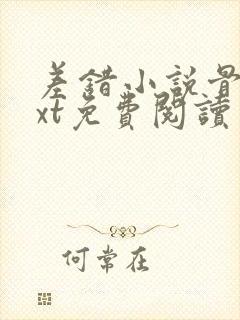 差錯小説
xt免費閱讀
何常在